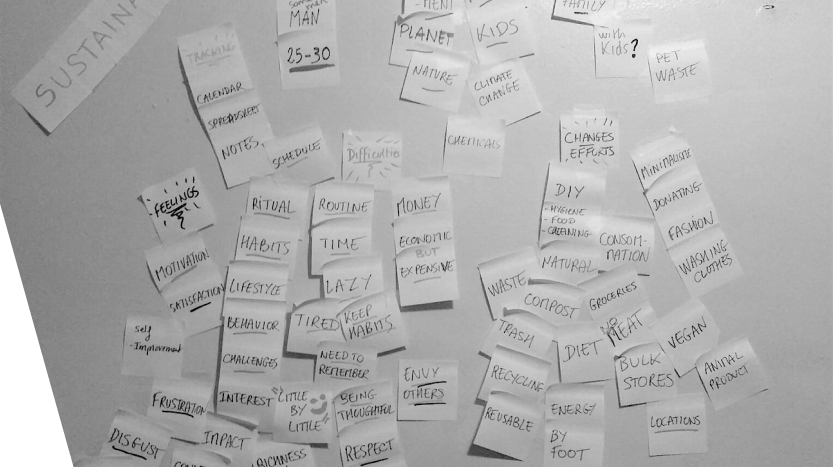 SUSTAINA
MAN
25-30
MENT
PLANET
NATURE
KIDS
CLIMATE
CHANGE
FAMILY
with
Kids?
PET
WASTE
TRACKING
CALENDAR
SPREADSHEET
NOTES
SCHEDULE
Difficultie
?
CHEMICALS
CHANGES
EFFORTS
FEELINGS
MOTIVATION
SATISFACTION
self
-Improvement
FRUSTRATION
DISGUST
IMPACT
RITUAL
HABITS
LIFESTYLE
BEHAVIOR
CHALLENGES
INTEREST
"LITTLE
BY
LITTLE"
RICHNESS
ROUTINE
TIME
LAZY
TIRED
KEEP
HABITS
NEED TO
REMEMBER
BEING
THOUGHTFUL
RESPECT
MONEY
ECONOMIC
BUT
EXPENSIVE
ENVY
OTHERS
DIY
- HYGIENE
- FOOD
- CLEANING
CONSOM-
MATION
NATURAL
WASTE
COMPOST
TRASH
RECYCLING
REUSABLE
GROCERIES
NO
MEAT
DIET
BULK
STORES
VEGAN
ANIMAL
PRODUCT
ENERGY
BY
FOOT
LOCATIONS
MINIMALISTE
DONATING
FASHION
WASHING
CLOTHES